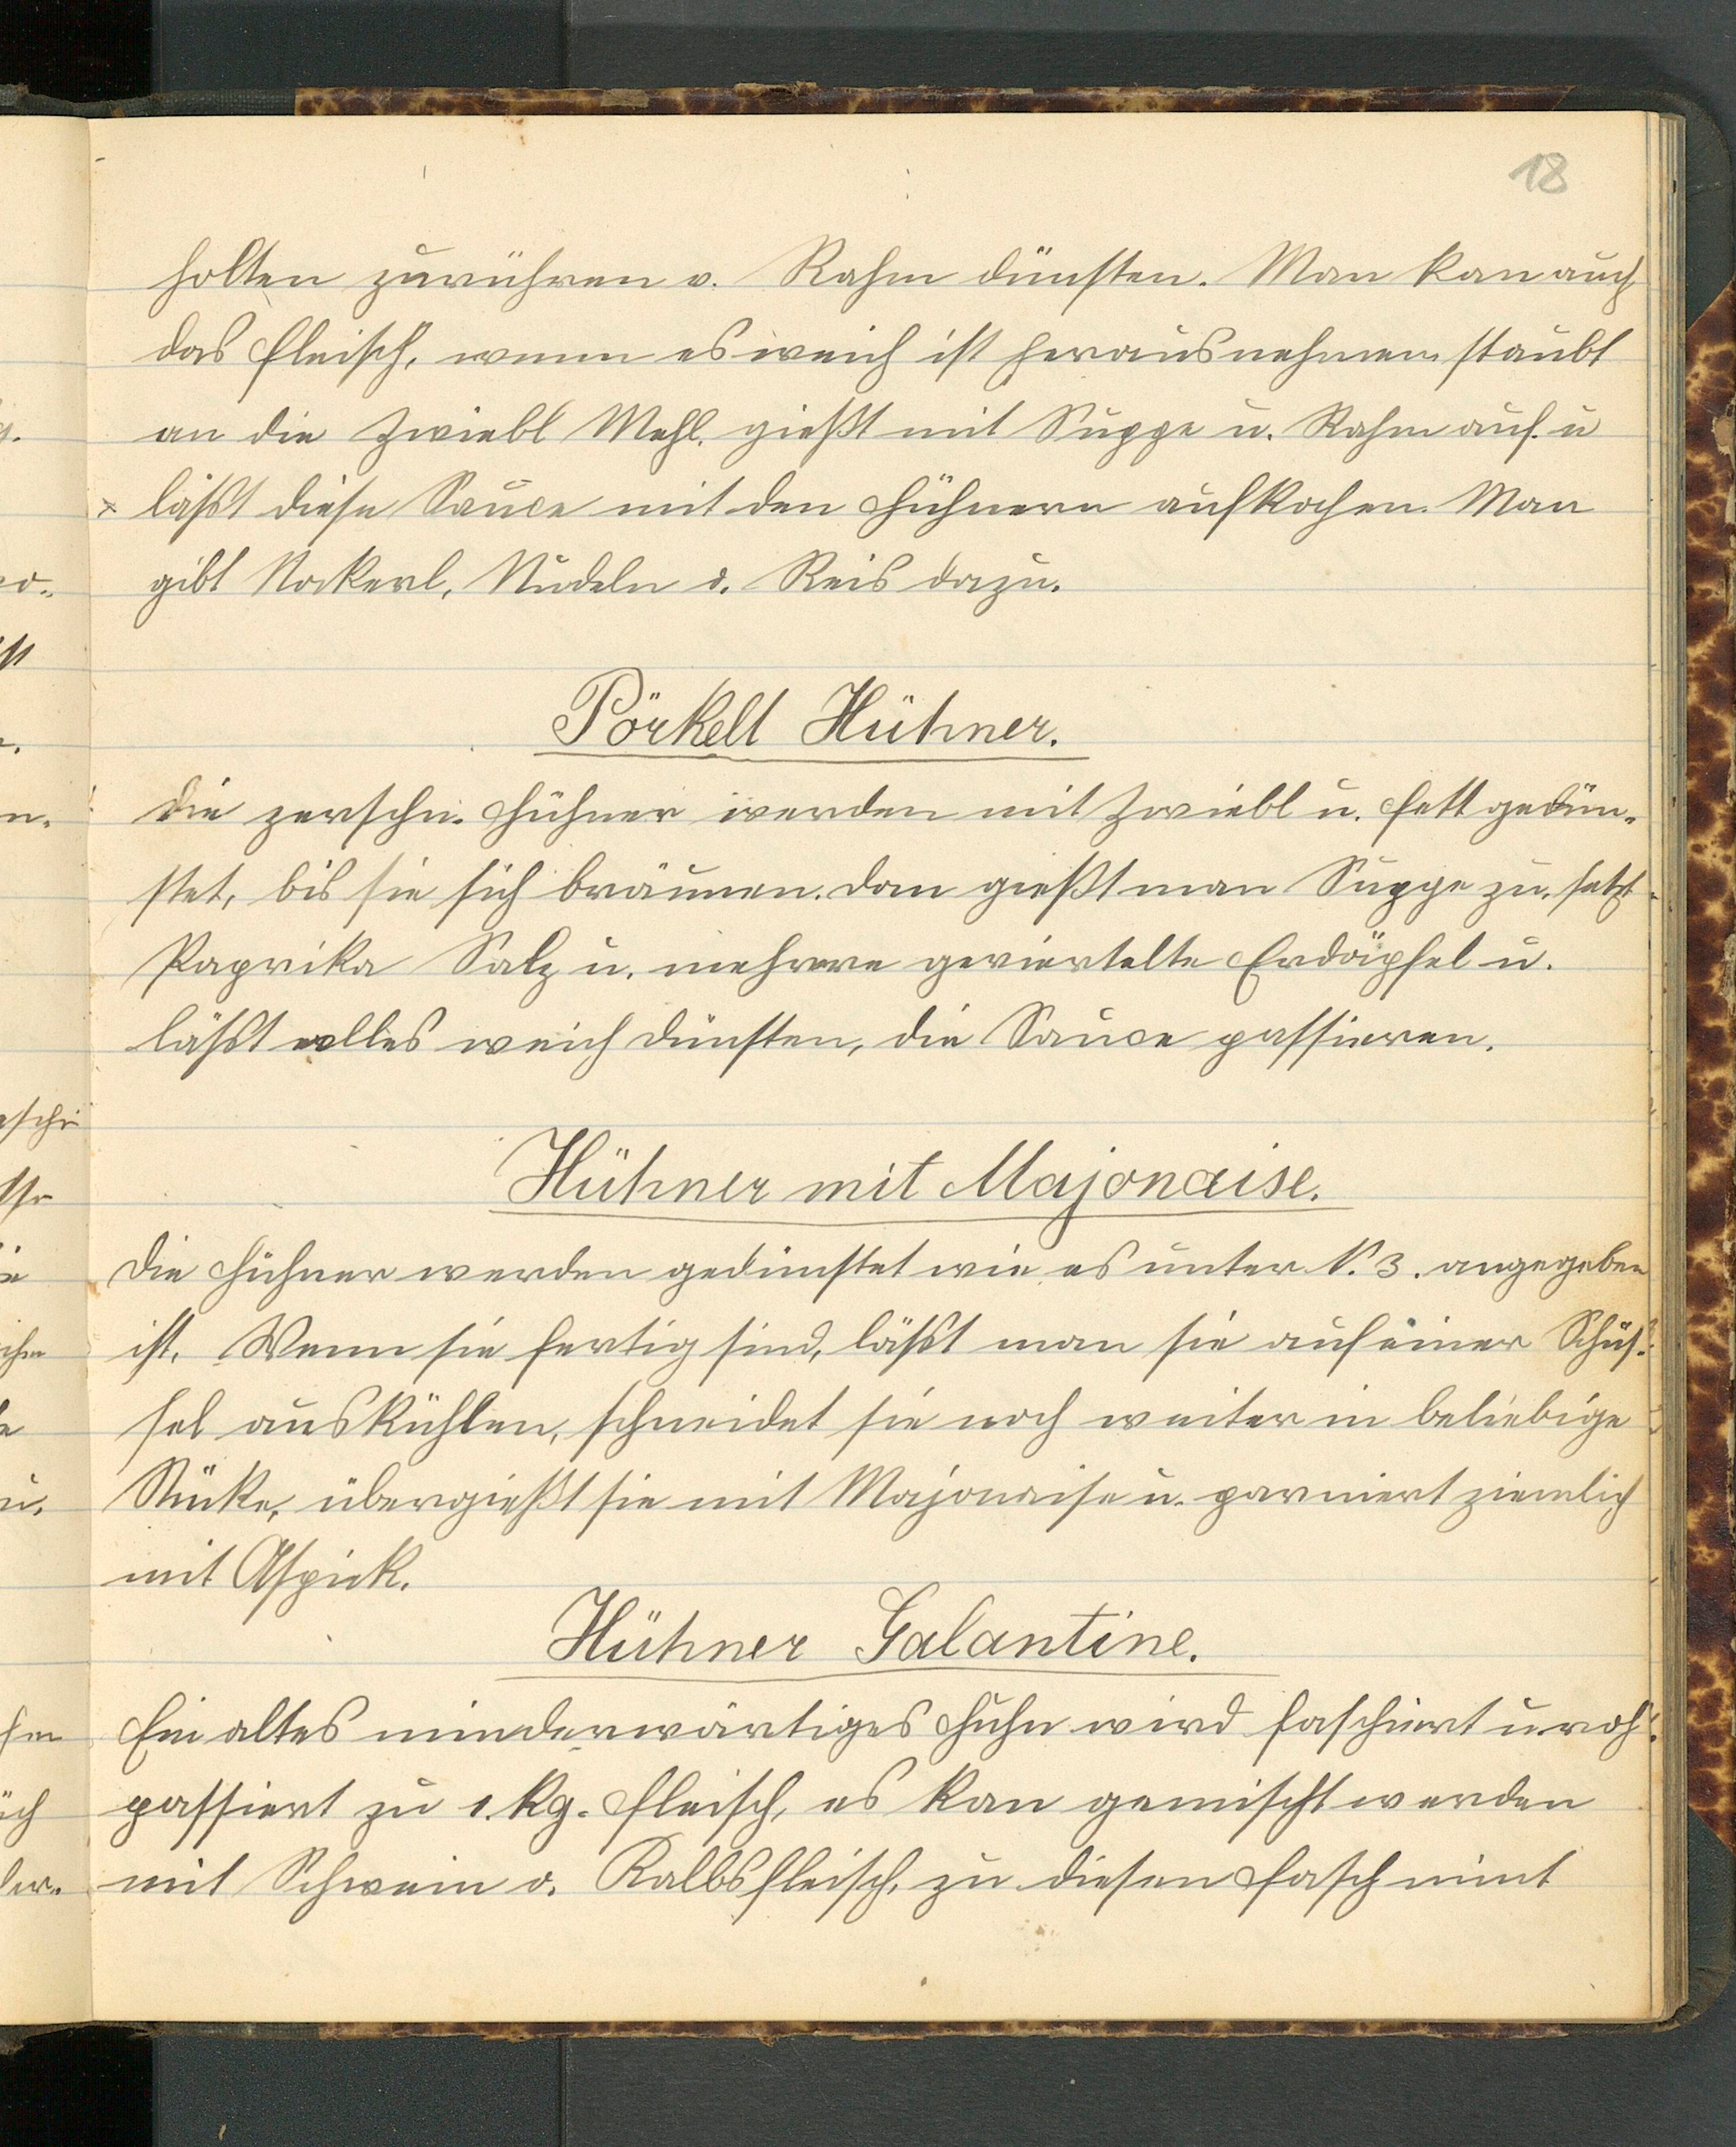 18
holten zurühren v. Rahm dünsten. Man kan auch
das Fleisch, wenn es weich ist herausnehmen staubt
an die Zwiebl Mehl, gießt mit Suppe u. Rahm auf. u
läßt diese Sauce mit den Hühnern aufkochen. Man
gibt Nokerl, Nudeln o. Reis dazu.
Pörkelt Hühner.
Die zerschn. Hühner werden mit Zwiebl u. Fett gedün-
stet, bis sie sich bräunen. Dan gießt man Suppe zu. setzt
Paprika Salz u. mehrere geviertelte Erdäpfel u.
läßt alles weich dünsten, die Sauce passieren.
Hühner mit Majonaise.
Die Hühner werden gedünstet wie es unter N. 3. angegeben
ist. Wenn sie fertig sind, läßt man sie auf einer Schüs-
sel auskühlen, schneidet sie noch weiter in beliebige
Stüke, übergießt sie mit Majonaise u. garniert ziemlich
mit Aspick.
Hühner Galantine.
Ein altes minderwärtiges Huhn wird faschiert u. roh
passiert zu 1. kg. Fleisch, es kan gemischt werden
mit Schwein o. Kalbsfleisch, zu diesen Fasch nimt